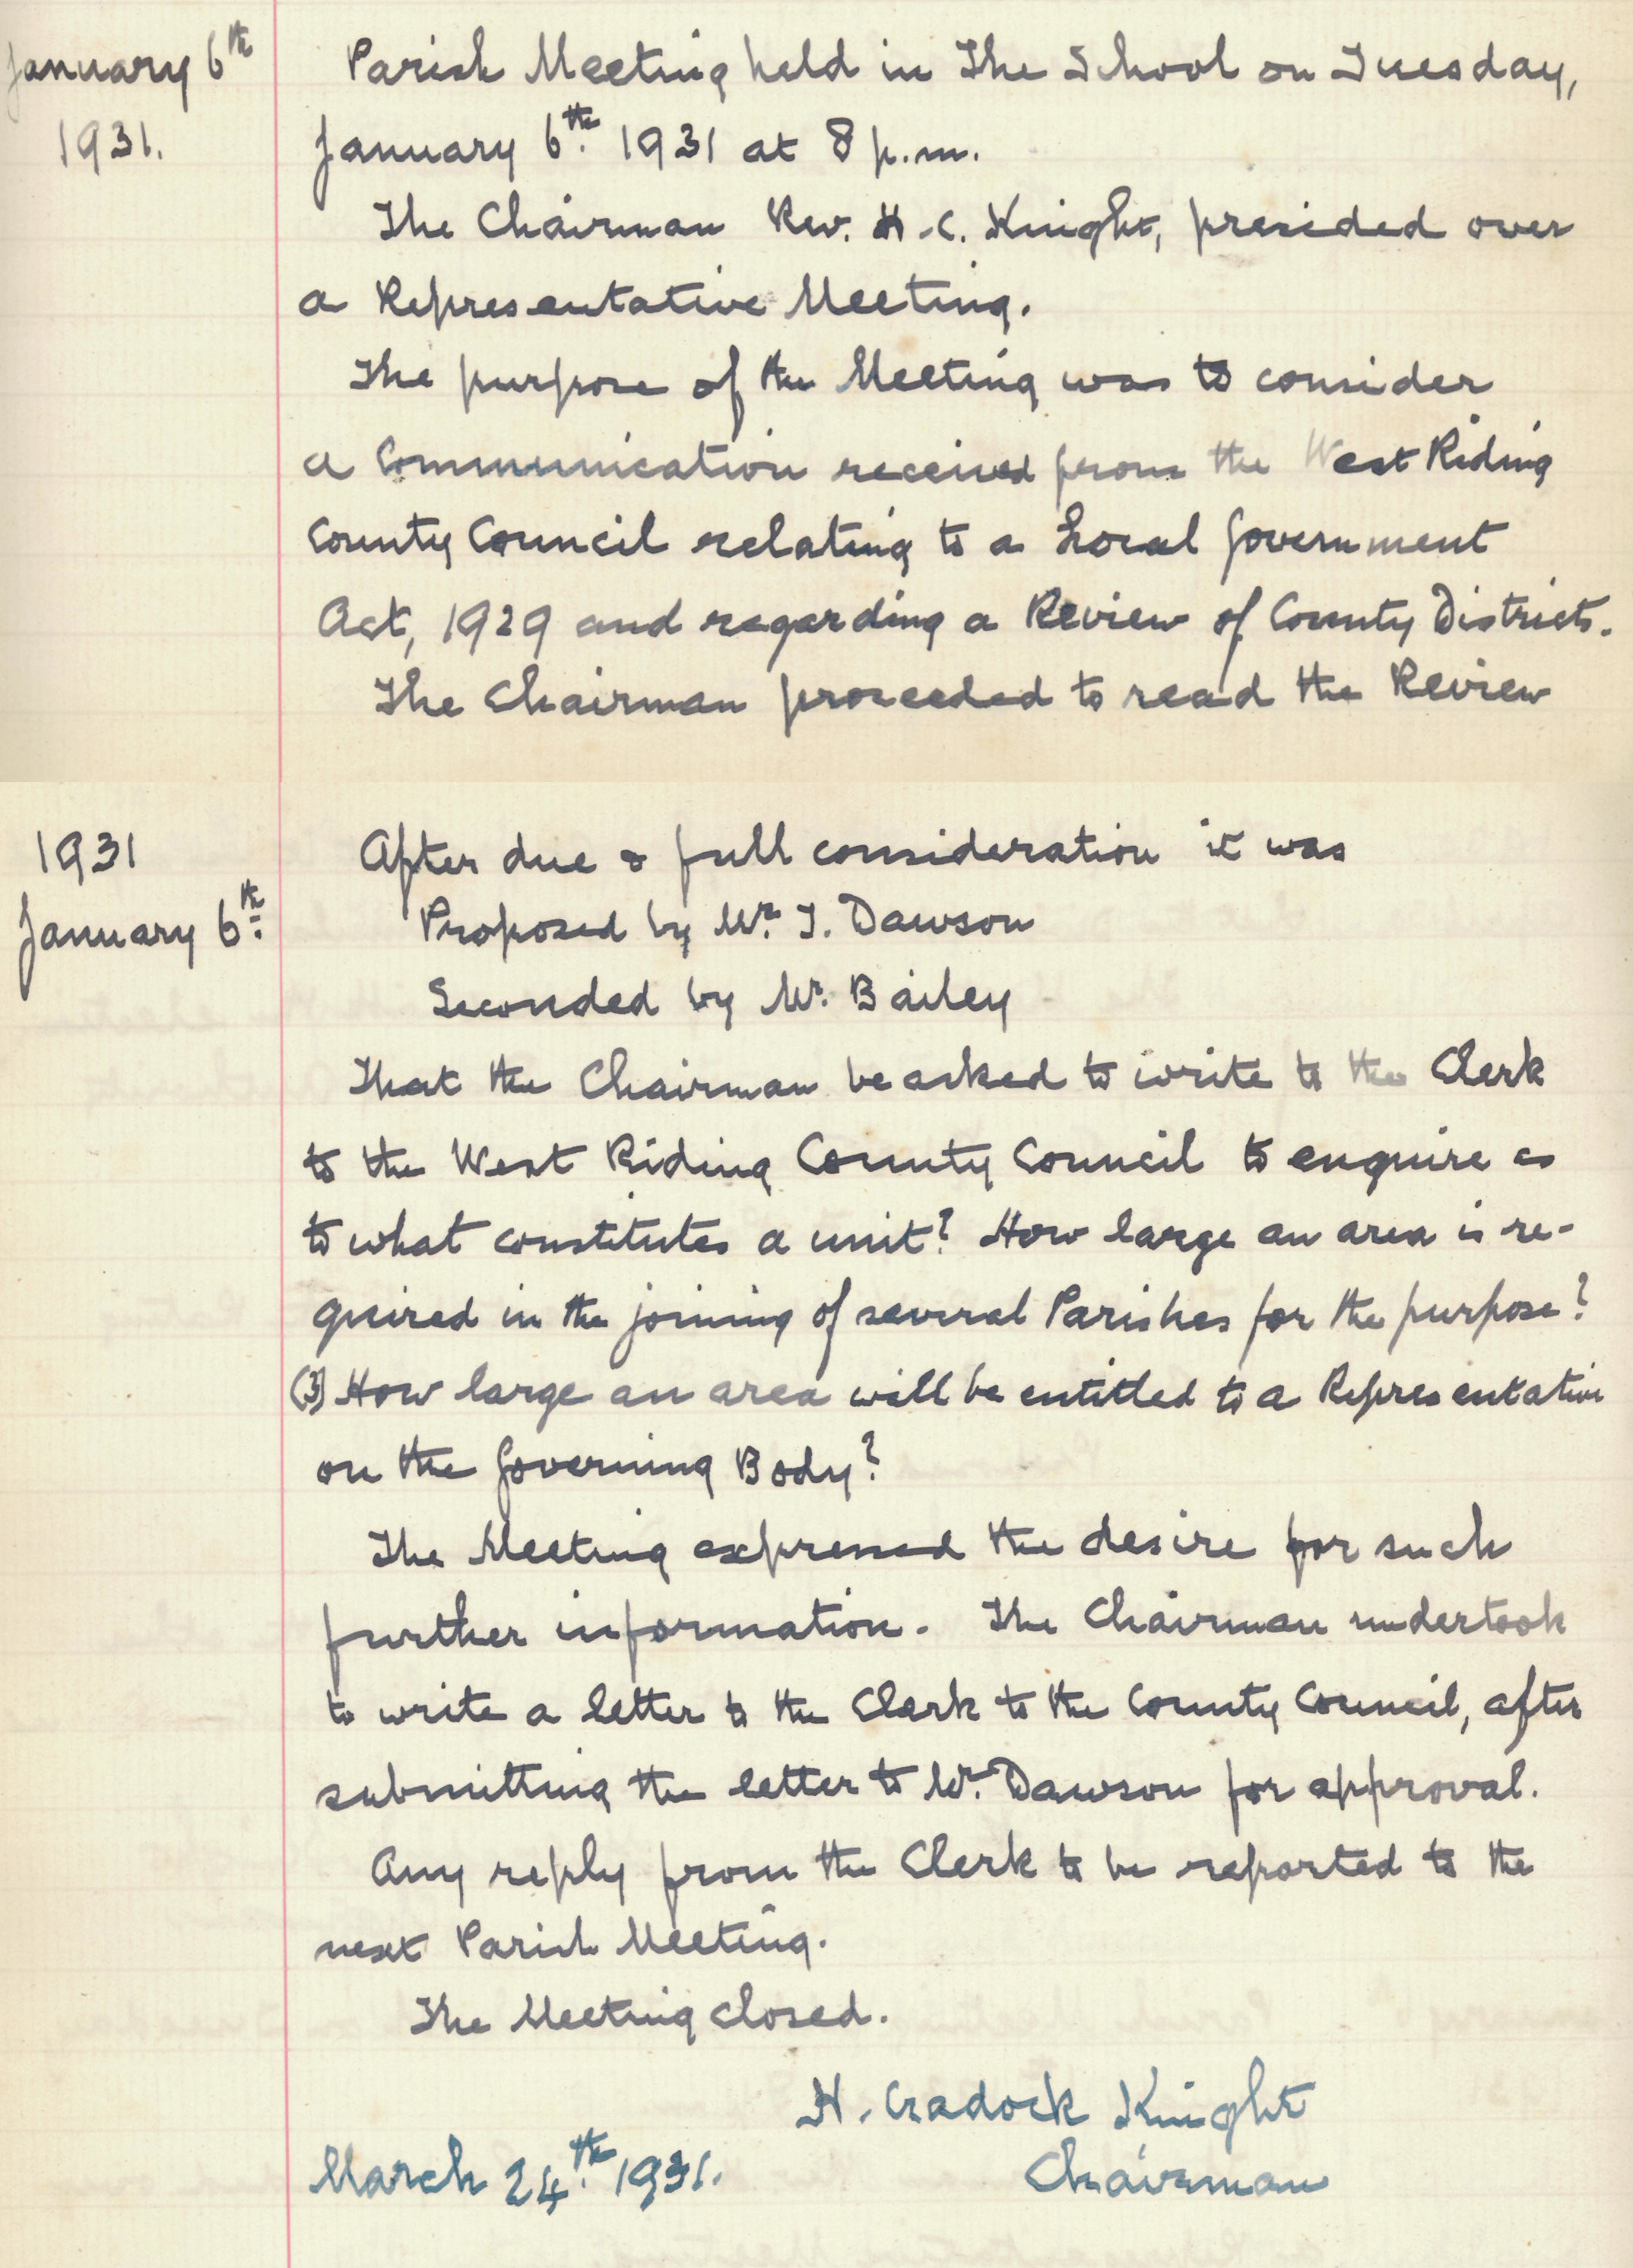 January 6th
1931.
Parish Meeting held in The School on Tuesday,
January 6th. 1931 at 8 p.m.
The Chairman Rev. H.C. Knight, presided over
a Representative Meeting.
The purpose of the Meeting was to consider
a Communication received from the West Riding
County Council relating to a Local Government
Act, 1929 and regarding a Review of County Districts.
The Chairman proceeded to read the Review
1931
January 6th.
After due & full consideration it was
Proposed by Mr. T. Dawson
Seconded by Mr. Bailey
That the Chairman be asked to write to the Clerk
to the West Riding County Council to enquire as
to what constitutes a unit? How large an area is re-
quired in the joining of several Parishes for the purpose?
(3) How large an area will be entitled to a Representative
on the Governing Body?
The Meeting expressed the desire for such
further information. The Chairman undertook
to write a letter to the Clerk to the County Council, after
submitting the letter to Mr. Dawson for approval.
Any reply from the Clerk to be reported to the
next Parish Meeting.
The Meeting closed.
H. Cradock Knight
March 24th. 1931.
Chairman